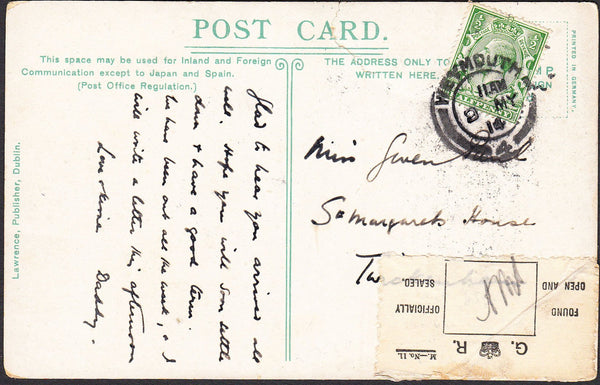 POST CARD.
This space may be used for Inland and Foreign
Communication except to Japan and Spain.
(Post Office Regulation.)
THE ADDRESS ONLY TO
WRITTEN HERE.
PRINTED IN GERMANY.
Lawrence, Publisher, Dublin.
Glad to hear you arrived all
well. Hope you will soon settle
down & have a good term.
has been out all the week, & I
will write a letter this afternoon
Love Daddy.
WEYMOUTH
11 AM
MY
14
4
Miss Gwen
St Margarets House
FOUND
OPEN AND
OFFICIALLY
SEALED.
G. R.
M.—No. 11.